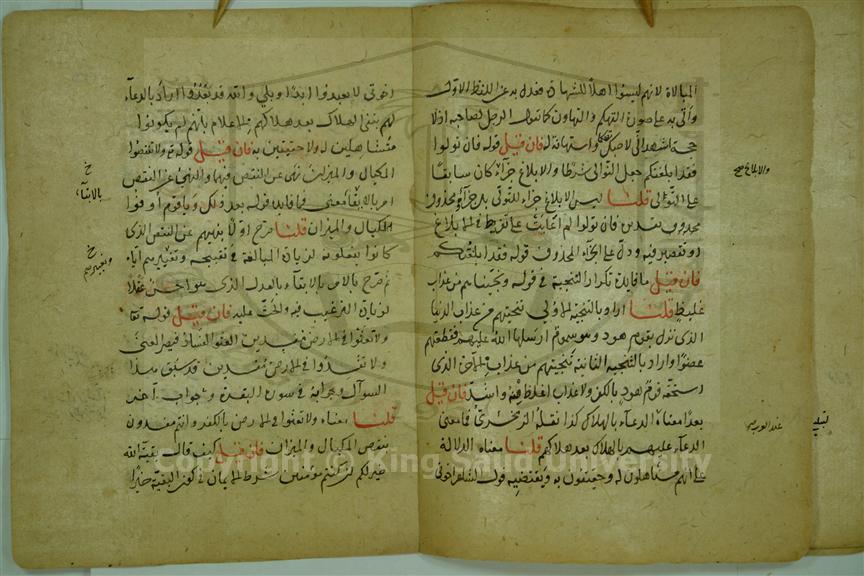 المبالاة لانهم ليسوا اهلا للشهادة فعدل به عن اللفظ الاول
وأتى به على صورة التهكم والتهاون كما يقول الرجل لصاحبه اذا لا
حجة اشهد اني لا احبك تهكما واستهانة له فان قيل قوله فان تولوا
فقد ابلغتكم جعل التولي شرطا والابلاغ جزاء كان سابقا
على التولي قلنا ليس الابلاغ جزاء للتولي بل جزاؤه محذوف
تقديره فان تولوا لم اعاتب على تفريط في الابلاغ
او تقصير فيه ودل على الجزاء المحذوف قوله فقد ابلغتكم
فان قيل ما فايدة تكرار التنجية في قوله ونجيناهم من عذاب
غليظ قلنا اراد بالتنجية الاولى تنجيتهم من عذاب الدنيا
الذي نزل بقوم هود وهو سموم ارسلها الله عليهم فقطعتهم
عضوا عضوا واراد بالتنجية الثانية تنجيتهم من عذاب الآخرة الذي
استحقه قوم هود بالكفر ولا عذاب اغلظ منه واشد فان قيل
بعدا معناه الدعاء بالهلاك كذا نقله الزمخشري فما معنى
الدعاء عليهم بالهلاك بعد هلاكهم قلنا معناه الدلالة
على انهم مستاهلون له وحقيقون به ونقيضه قول الشاعر اخوتي
والابلاغ صح
عند العرب
اخوتي لا تبعدوا ابدا وبلى والله قد بعدوا اراد بالدعاء
لهم بنفي الهلاك بعد هلاكهم الاعلام بانهم لم يكونوا
مستاهلين له ولا حقيقين به فان قيل قوله تع ولا تنقصوا
المكيال والميزان نهى عن النقص فيهما والنهي عن النقص
امر بالايفاء معنى فما فايدة قوله بعد ذلك ويا قوم اوفوا
المكيال والميزان قلنا صرح اولا بنهيهم عن النقص الذي
كانوا يفعلونه لزيادة المبالغة في تقبيحه وتغييرهم اياه
ثم صرح بالامر بالايفاء بالعدل الذي هو حسن عقلا
لزيادة الترغيب فيه والحث عليه فان قيل قوله تعا
ولا تعثوا في الارض مفسدين العثو الفساد فيصير المعنى
ولا تفسدوا في الارض مفسدين قد سبق هذا
السؤال وجوابه في سورة البقرة وجواب آخر
قلنا معناه ولا تعثوا في الارض بالكفر وانتم مفسدون
بنقص المكيال والميزان فان قيل كيف قال بقية الله
خير لكم ان كنتم مؤمنين شرط الايمان في كون البقية خيرا
خ
بالايفاء
خ
وتعييرهم
Copyright © King Saud University